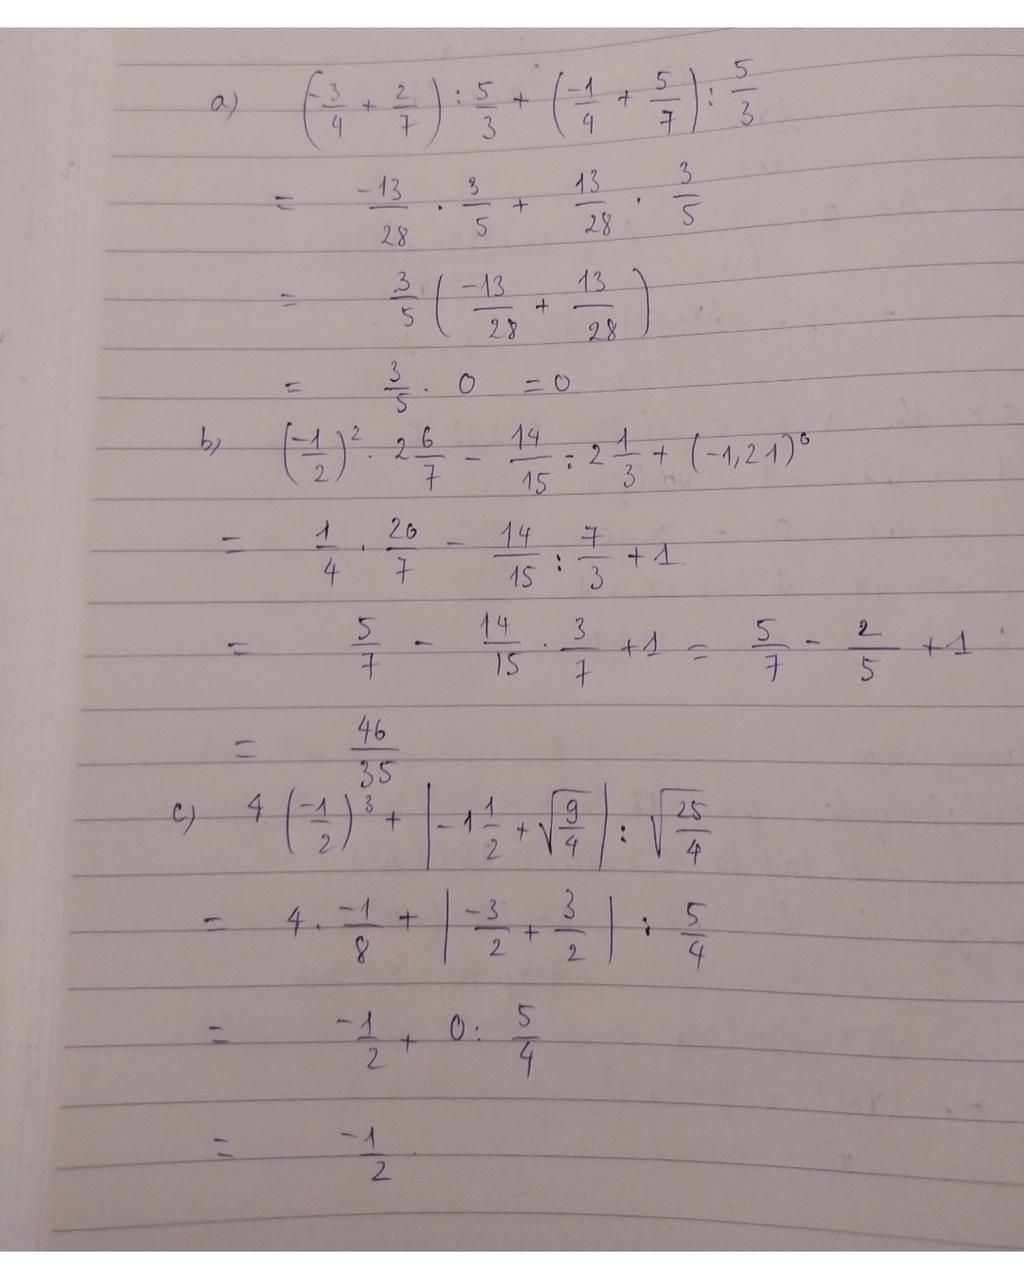 a) (-3/4 + 2/7) : 5/3 + (-1/4 + 5/7) : 5/3
= -13/28 . 3/5 + 13/28 . 3/5
= 3/5 (-13/28 + 13/28)
= 3/5 . 0 = 0
b) (-1/2)² . 2 6/7 - 14/15 : 2 1/3 + (-1,21)⁰
= 1/4 . 20/7 - 14/15 : 7/3 + 1
= 5/7 - 14/15 . 3/7 + 1 = 5/7 - 2/5 + 1
= 46/35
c) 4. (-1/2)³ + |-1 1/2 + √(9/4)| : √(25/4)
= 4 . -1/8 + |-3/2 + 3/2| : 5/4
= -1/2 + 0 : 5/4
= -1/2